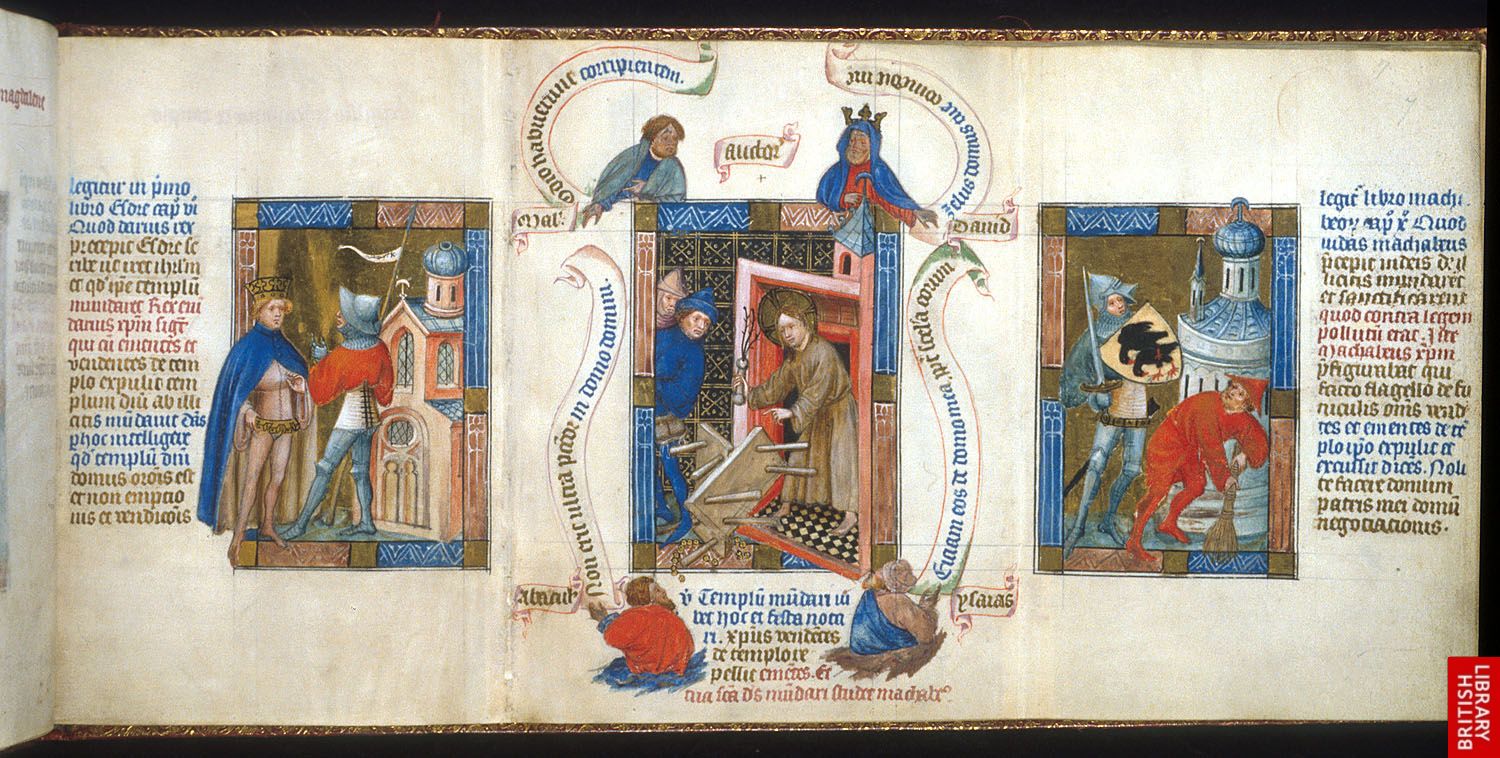 magdalene
legitur in p̄mo
libro Esdre cap̄ vi
Quod darius rex
precepit Esdre sc
ribe ut iret ihrl'm
et qd' ip̄e templū
mundaret Rex eni
darius xp̄m sigt
qui cū emētes et
vendentes de tem
plo expulit tem
plum dīu ab illi
citis mūdavit dās
p̄ hoc intelligere
qd' templū dīu
domus orōis est
et non emptio
nis et vendicōis
Odio habuerunt corripientem.
Mal.
Auctor
Zelus domus tue comedit me
David
Non erit ultra in domo domini.
Abacuk
Eiciam eos de domo mea
ysaias
v̄ Templū mūdari iu
bet hoc et festa nota
ri. xp̄us vendētes
de templo re
pellit emētes. Et
tua scā d's mūdari studet machabe
legit' libro machа
beoꝝ cap̄ x̄ Quod
iudas machabeus
p̄cepit iudeis
et sanctificarent
quod contra legem
pollutū erat. Iste
machabeus xp̄m
p̄figurabat qui
facto flagello de fu
niculis om̄s vend
tes et ementes de tē
plo ip̄o expulit et
excussit dices. Noli
te facere domum
patris mei domū
negociacionis.
BRITISH
LIBRARY